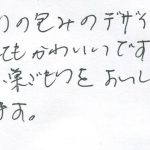 りの包みのデザイ
てもかわいいです
巣ごもりをおいし
ます。